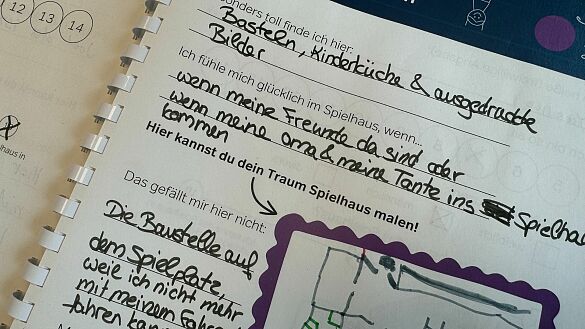 12 13 14
sonders toll finde ich hier:
Basteln, Kinderküche & ausgedruckte
Bilder
Ich fühle mich glücklich im Spielhaus, wenn...
wenn meine Freunde da sind oder
wenn meine Oma & meine Tante ins Spielhau
kommen
Hier kannst du dein Traum Spielhaus malen!
haus in
Das gefällt mir hier nicht:
Die Baustelle auf
dem Spielplatz,
weil ich nicht mehr
mit meinem Fahr
fahren kan